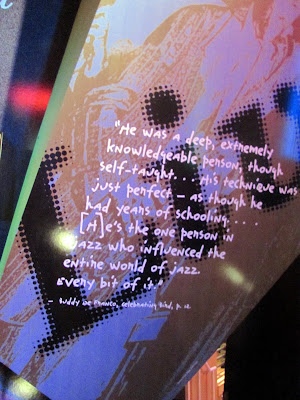 "He was a deep, extremely
knowledgeable person, though
self-taught... His technique was
just perfect – as though he
had years of schooling....
[H]e's the one person in
jazz who influenced the
entire world of jazz.
Every bit of it."
– Buddy De Franco, Celebrating Bird, p. 12